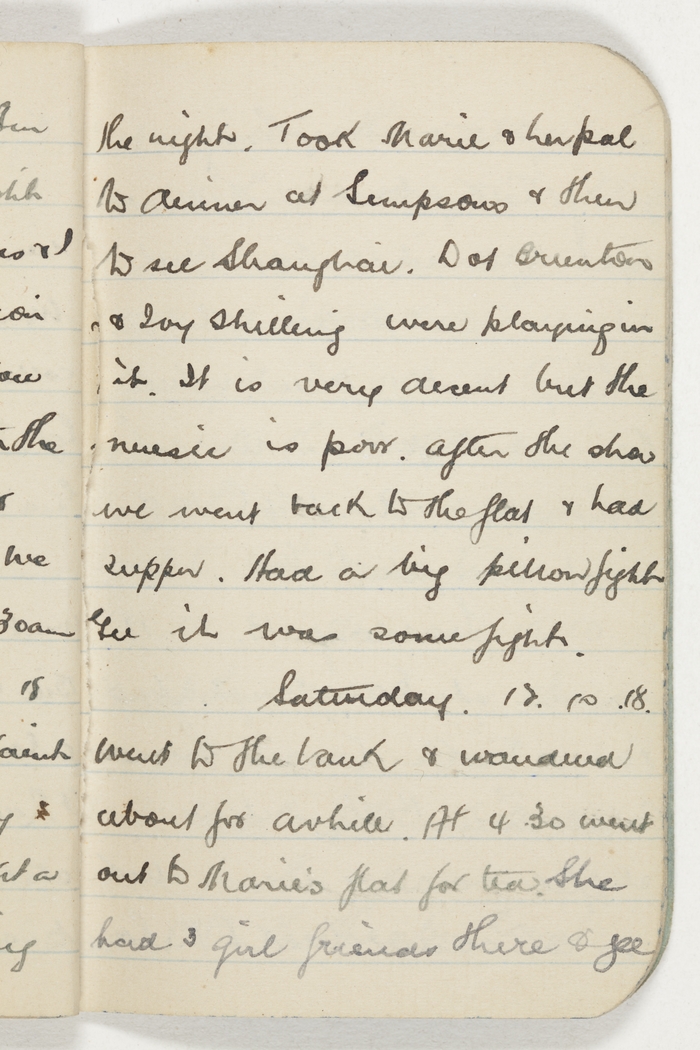 the night. Took Marie & her pal
to dinner at Simpsons & then
to see Shanghai. Dot Brunton
& Ivy Shilling were playing in
it. It is very decent but the
music is poor. After the show
we went back to the flat & had
supper. Had a big pillow fight
Gee it was some fight.
Saturday. 10 .18.
Went to the bank & wandered
about for awhile. At 4.30 went
out to Marie's flat for tea. She
had 3 girl friends there & gee
30am
18
the
we